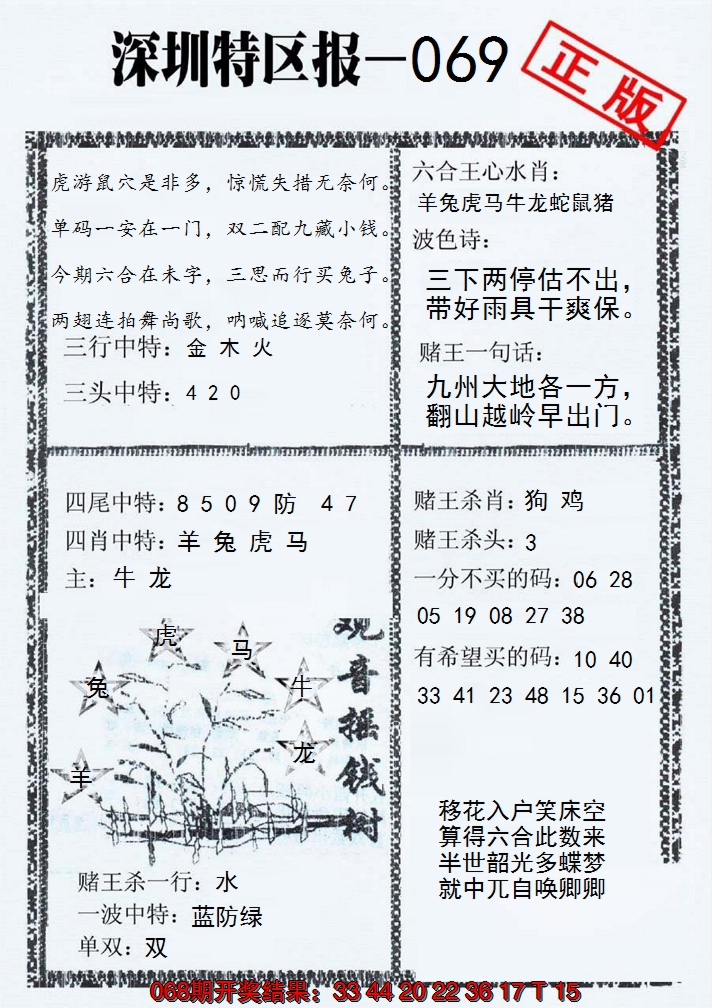 深圳特区报—069
正版
虎游鼠穴是非多，惊慌失措无奈何。
单码一安在一门，双二配九藏小钱。
今期六合在未字，三思而行买兔子。
两翅连拍舞尚歌，呐喊追逐莫奈何。
三行中特：金 木 火
三头中特：4 2 0
六合王心水肖：
羊兔虎马牛龙蛇鼠猪
波色诗：
三下两停估不出，
带好雨具干爽保。
赌王一句话：
九州大地各一方，
翻山越岭早出门。
四尾中特：8 5 0 9 防 4 7
四肖中特：羊 兔 虎 马
主：牛 龙
虎
马
兔
牛
龙
羊
观音摇钱树
赌王杀一行：水
一波中特：蓝防绿
单双：双
赌王杀肖：狗 鸡
赌王杀头：3
一分不买的码：06 28
05 19 08 27 38
有希望买的码：10 40
33 41 23 48 15 36 01
移花入户笑床空
算得六合此数来
半世韶光多蝶梦
就中兀自唤卿卿
068期开奖结果：33 44 20 22 36 17 T 15